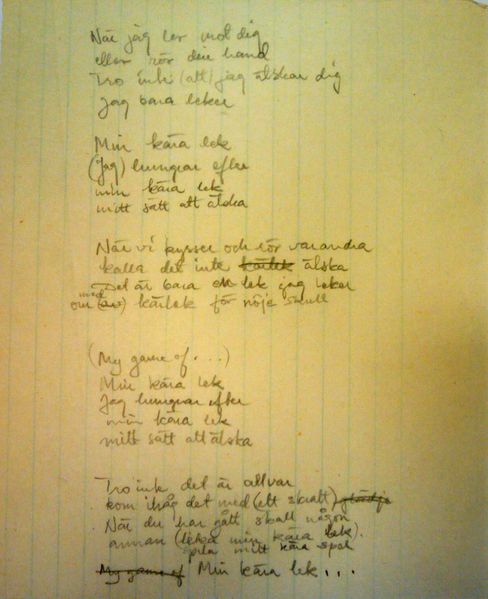 När jag ler mot dig
eller rör din hand
Tro inte (att) jag älskar dig
Jag bara leker

Min kära lek
(Jag) hungrar efter
min kära lek
mitt sätt att älska

När vi kysser och rör varandra
kalla det inte kärlek älska
Det är bara en lek jag leker
om med (av) kärlek för nöje skull

(My game of...)
Min kära lek
Jag hungrar efter
min kära lek
mitt sätt att älska

Tro ink det är allvar
kom ihåg det med (ett skratt) glädje
När du har gått skall någon
annan (leka min kära lek).
spela mitt kära spel
My game of Min kära lek...